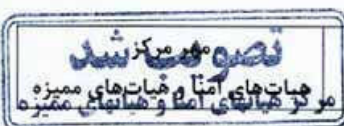 تصویب شد
مهر مرکز
هیات‌های آمنا و هیات‌های ممیزه
مرکز هیاتهای امنا و هیاتهای ممیزه